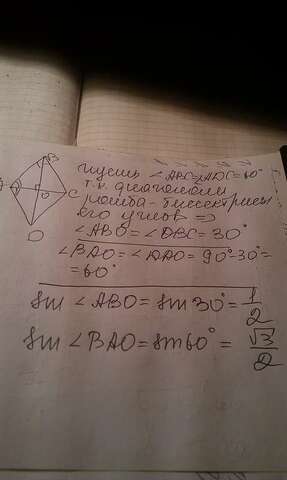 B
A
O
C
D
пусть ∠ABC=∠ADC=60°
т.к. диагонали
ромба-биссектрисы
его углов =>
∠ABO=∠OBC=30°
∠BAO=∠DAO=90°-30°=
=60°
sin ∠ABO=sin30°=1/2
sin ∠BAO=sin60°=√3/2